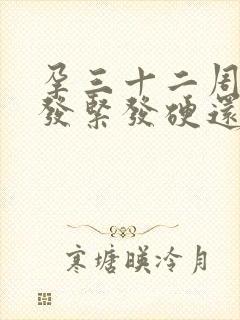 孕三十二周
發緊發硬還
寒塘暎冷月